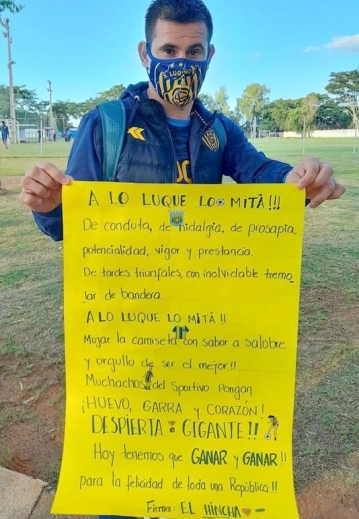 S. LUQUEÑO
A LO LUQUE LO MITÃ!!!
De conducta, de hidalgia, de prosapia,
potencialidad, vigor y prestancia.
De tardes triunfales, con inolvidable tremo
lar de bandera.
A LO LUQUE LO MITÃ!!
Mojar la camiseta con sabor a salobre
y orgullo de ser el mejor!!
Muchachos del Sportivo Pongan
¡HUEVO, GARRA y CORAZÓN!
DESPIERTA GIGANTE!!
Hoy tenemos que GANAR y GANAR!!
para la felicidad de toda una República!!
Firma: EL HINCHA